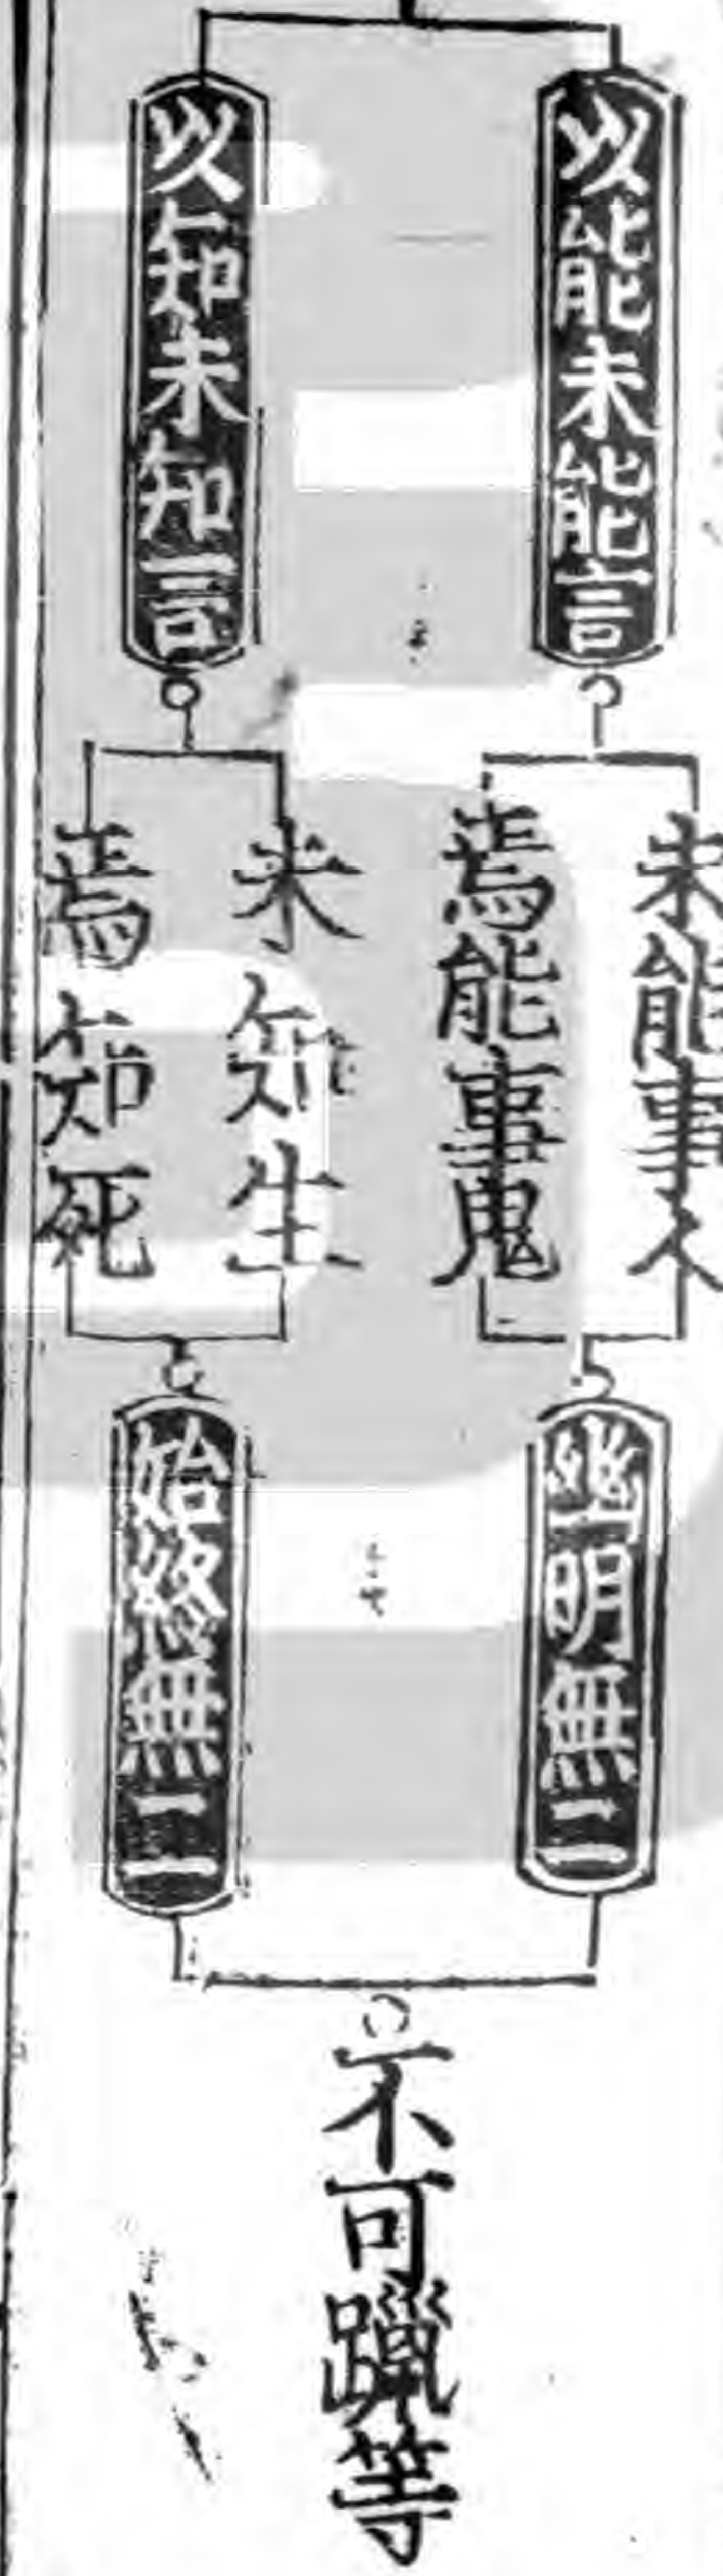 以能未能言
未能事人
焉能事鬼
幽明無二
以知未知言
未知生
焉知死
始終無二
不可躐等